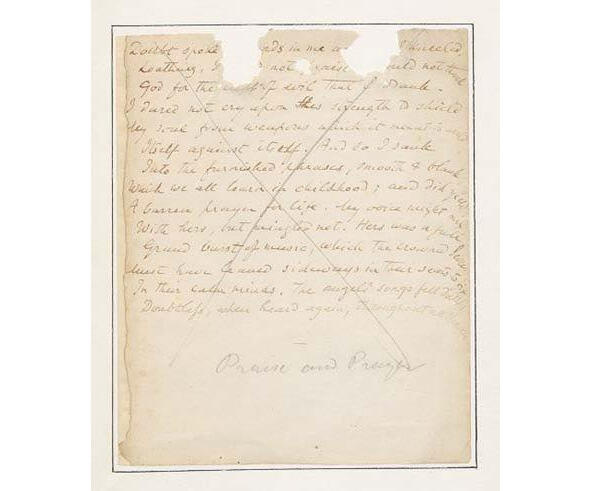 Doubt spoke ds in me kneeled
Loathing, I not praise could not thank
God for the cup of evil that I drank.
I dared not cry upon His strength to shield
My soul from weapons which it meant to
Itself against itself. And so I sank
Into the furnished phrases, smooth & blank
Which we all learn in childhood; and did yield
A barren prayer for life. My voice might mix
With hers, but mingled not. Hers was a full
Grand burst of music, which the crowned
Must have leaned sideways in their seats to fix
In their calm minds. The angels' songs fell dull
Doubtless, when heard again, throughout
Praise and Prayer